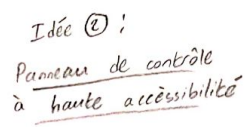 Idée ② :
Panneau de contrôle
à haute accèssibilité